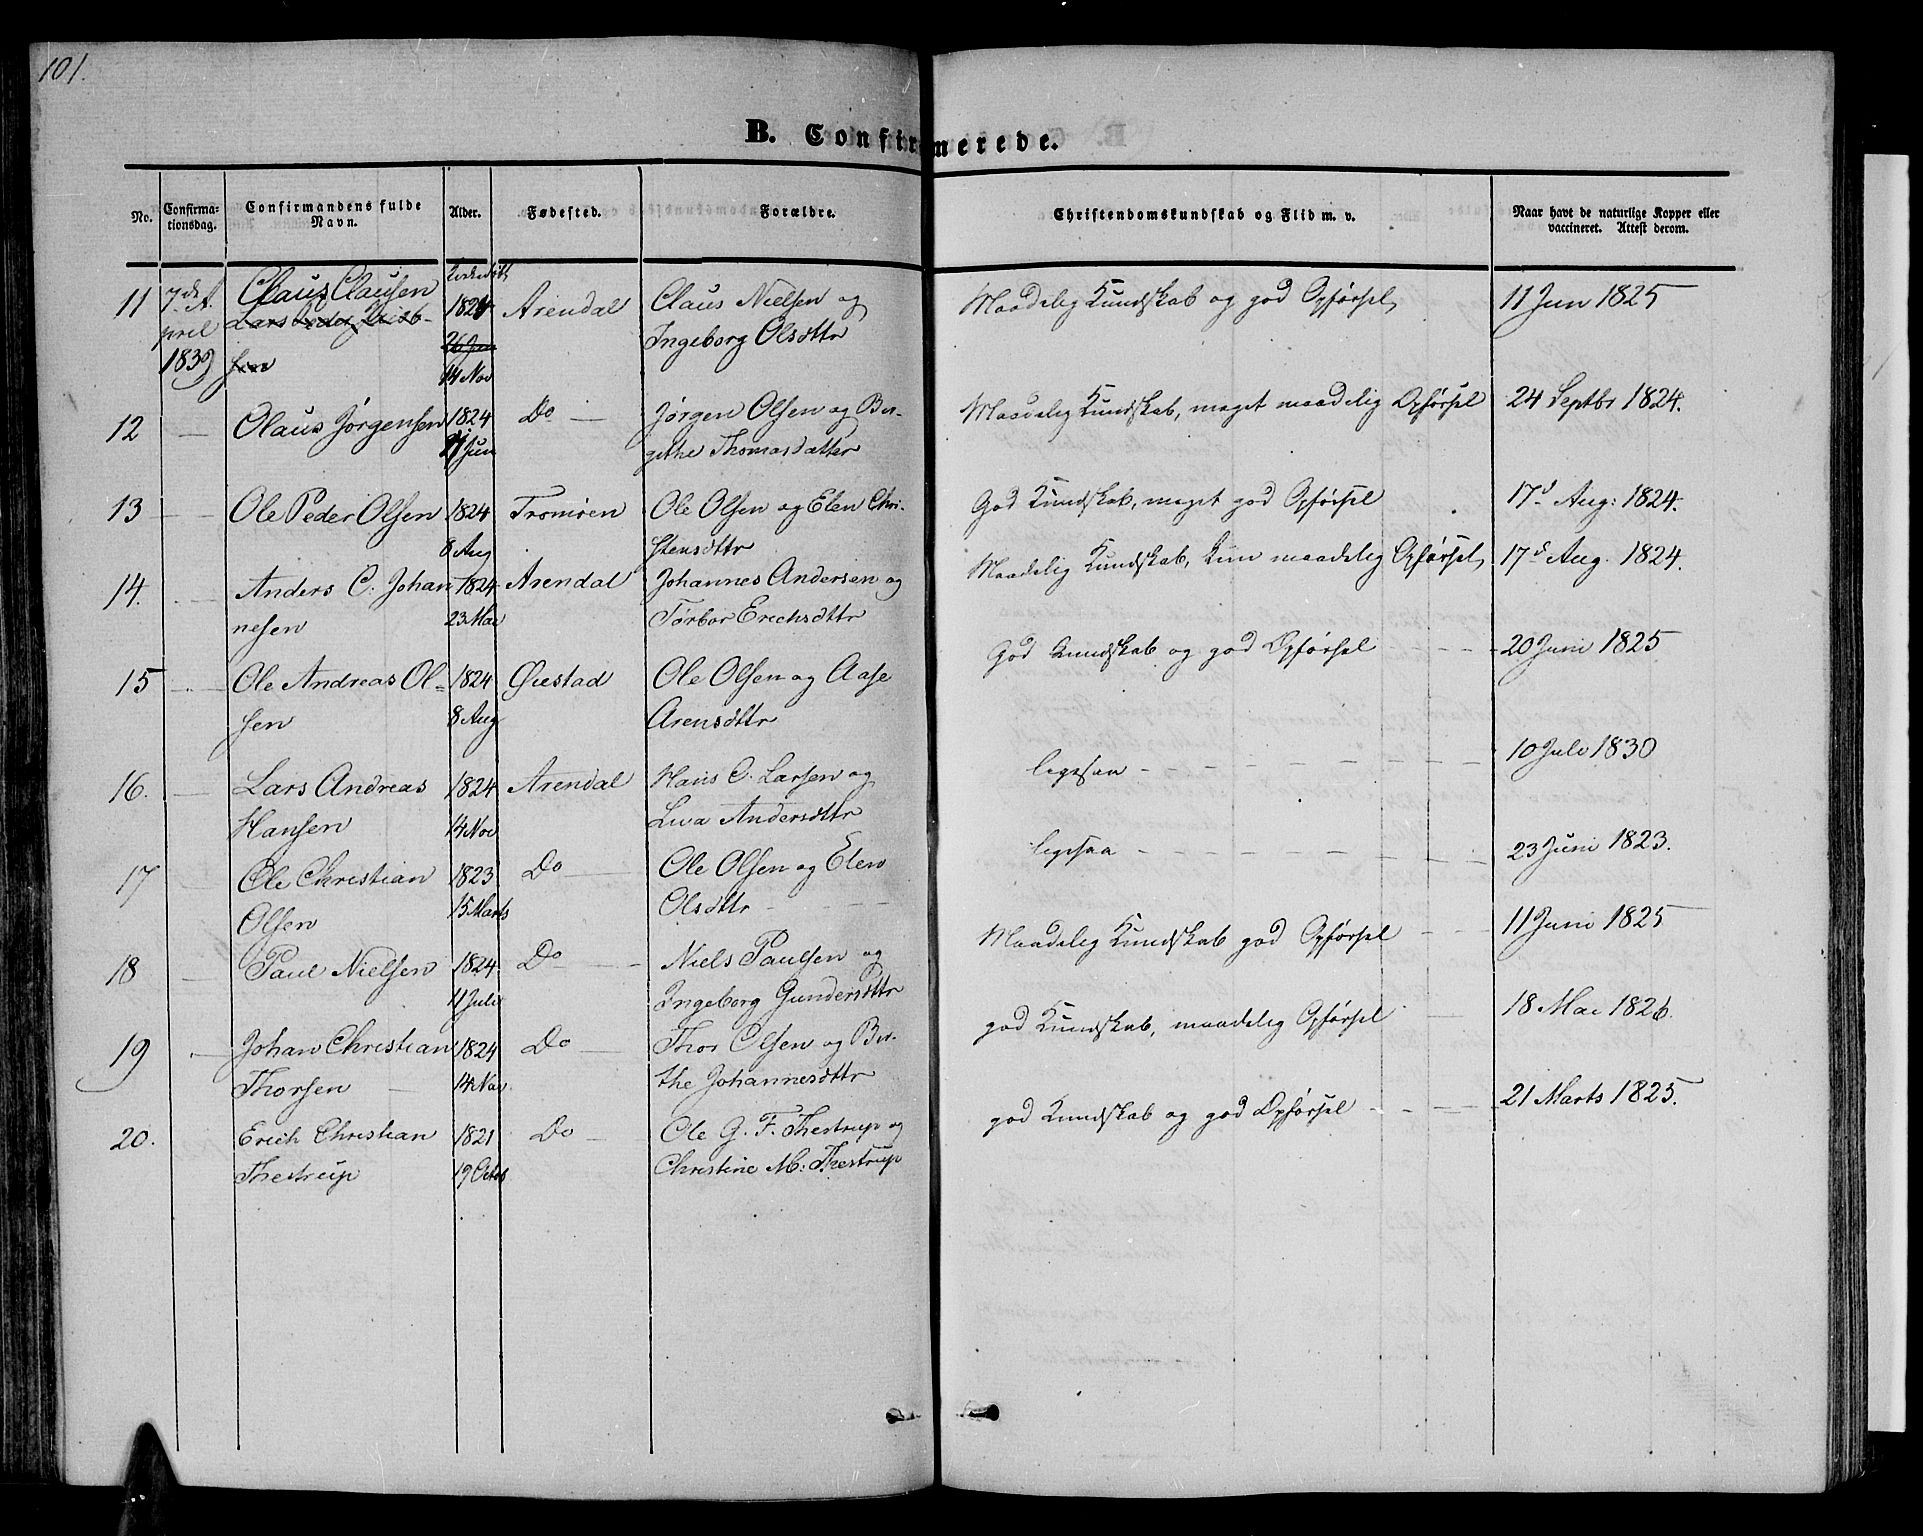 101.
B. Confirmerede.
No. Confirmationsdag. Confirmandens fulde Navn. Alder. Fødested. Forældre. Christendomskundskab og Flid m. v. Naar havt de naturlige Kopper eller vaccineret. Attest derom.
11 7de A- Claus Clausen 1824 Arendal Claus Nielsen og Maadelig Kundskab og god Opførsel, 11 Jun 1825
pril Lars Peder 26 Jun Ingeborg Olsdttr
1839 sen 14 Nov
12 — Olaus Jørgensen 1824 Do — Jørgen Olsen og Ber- Maadelig Kundskab, meget maadelig Opførsel 24 Septbr 1824.
Jun githe Thomasdatter
13 — Ole Peder Olsen 1824 Tromøen Ole Olsen og Elen Chri- God Kundskab, meget god Opførsel 17d Aug: 1824.
8 Aug stensdttr
14. — Anders C. Johan 1824 Arendal Johannes Andersen og Maadelig Kundskab, kun maadelig Opførsel, 17d Aug. 1824.
nesen 23 Mai Torbor Erichsdttr
15 — Ole Andreas Ol- 1824 Øiestad Ole Olsen og Aase God Kundskab og god Opførsel - - - - 20 Juni 1825
sen 8 Aug Arensdttr
16. — Lars Andreas 1824 Arendal Hans C. Larsen og ligesaa - - - - - - - - - 10 Juli 1830
Hansen 14 Nov Andersdttr
17 — Ole Christian 1823 Do — Ole Olsen og Elen ligesaa - - - - - - - - - 23 Juni 1823.
Olsen 15 Marts Olsdttr - - - -
18 — Paul Nielsen 1824. Do — Niels Paulsen og Maadelig Kundskab god Opførsel - - 11 Juni 1825
11 Juli Ingeborg Gundersdttr
19 — Johan Christian 1824 Do — Thor Olsen og Ber- god Kundskab, maadelig Opførsel — — 18 Mai 1826.
Thorsen — 14 Nov the Johannesdttr
20. Erich Christian 1821 Do — Ole G. F. Thestrup og god Kundskab og god Opførsel - - - - 21 Marts 1825.
Thestrup 19 Octob Christine M: Thestrup